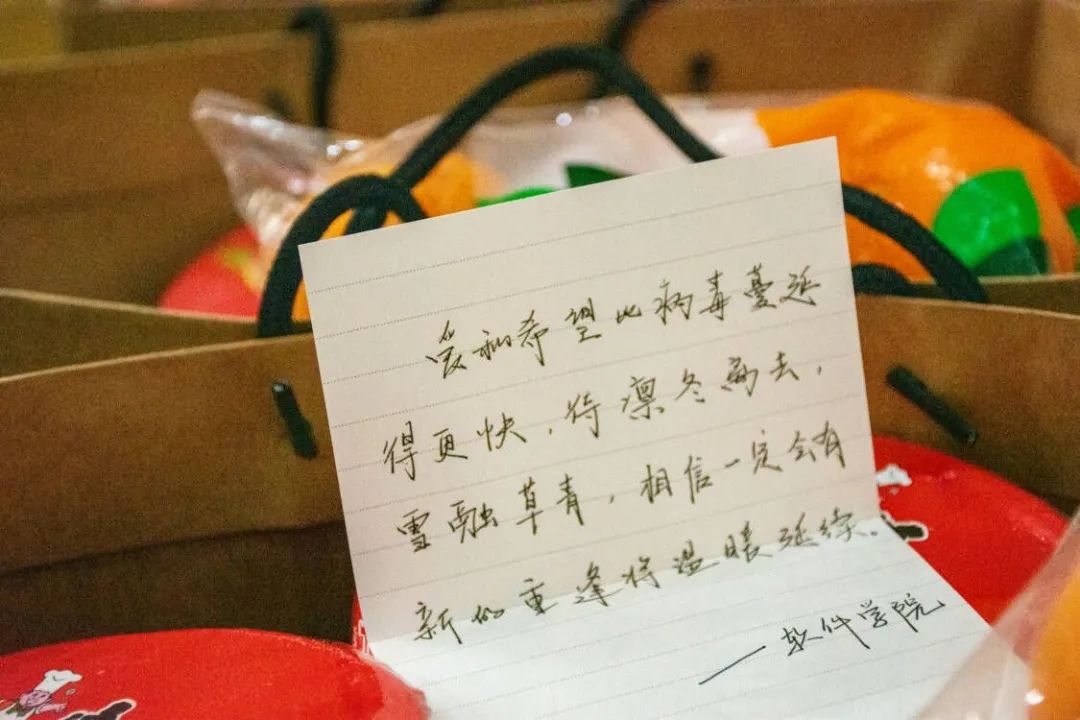 爱和希望比病毒蔓延
得更快,待凛冬离去,
雪融草青,相信一定会有
新的重逢将温暖延续。
—软件学院